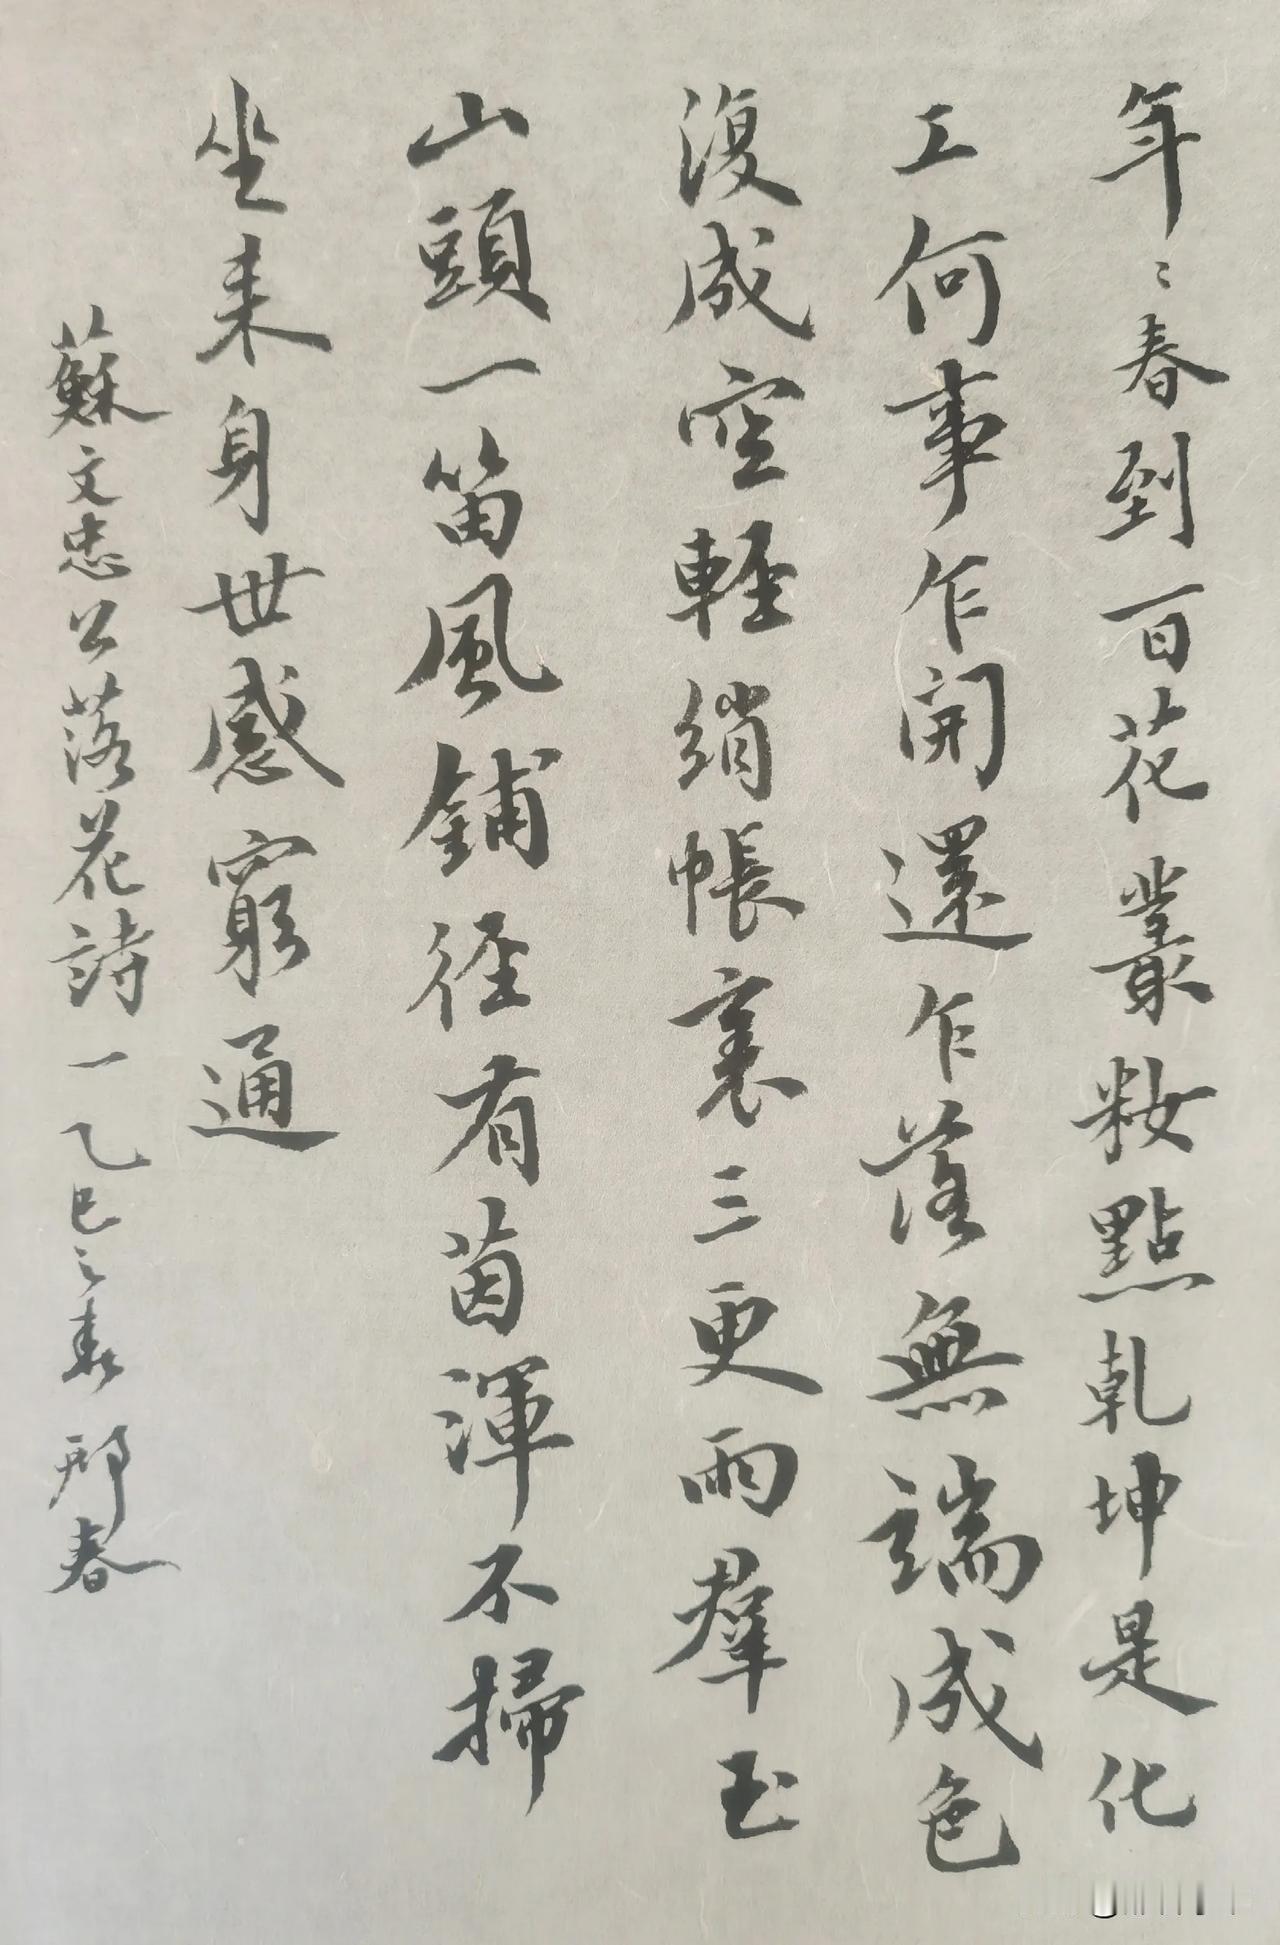 年〻春到百花叢粧點乾坤是化
工何事乍開還乍落無端成色
復成空輕綃帳裏三更雨羣玉
山頭一笛風鋪徑有茵渾不掃
坐来身世感窮通
蘇文忠公落花詩一乙巳之春邢春